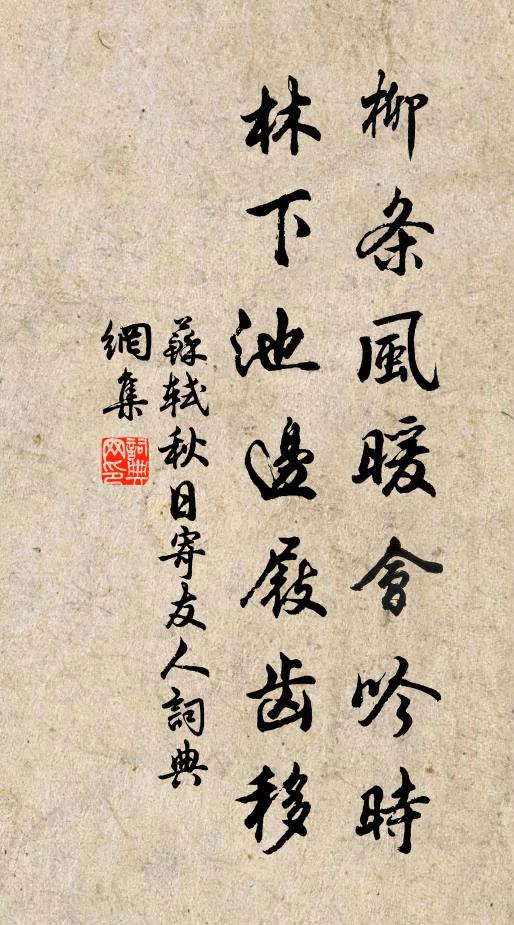 柳条風暖會吟時
林下池邊屐齿移
蘇轼秋日寄友人詞典
網集
詞典网印